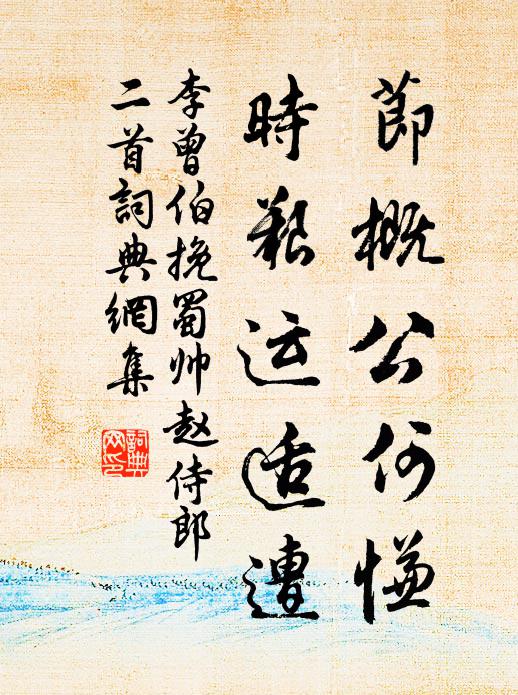 節概公何慊
時艱运适遭
李曾伯挽蜀帅赵侍郎
二首詞典網集
詞典网印